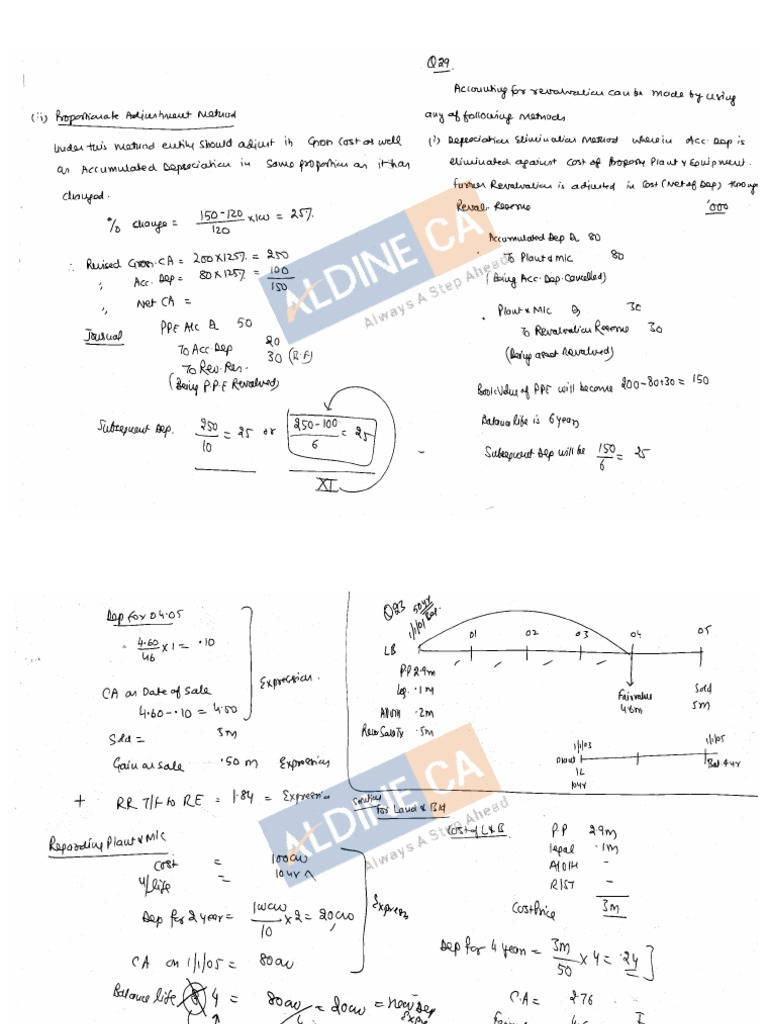 Q29
Accounting for revalvation can be made by using
any of following Methods
(i) Depreciation Elimination Method wherein Acc. Dep is
eliminated against cost of Property Plant & Equipment.
Further Revalvation is adjusted in Cost (Net of Dep) through
Reval. Reserve
'000
Accumulated Dep Dr 80
To Plant & M/c 80
(Being Acc. Dep. Cancelled)
Plant & M/c Dr 30
To Revalvation Reserve 30
(Being asset Revalued)
Book Value of PPE will become 200-80+30 = 150
Balance life is 6 years
Subsequent Dep will be 150/6 = 25
(ii) Proportionate Adjustment Method
Under this method entity should adjust its Gross Cost as well
as Accumulated Depreciation in Same proportion as it has
changed.
% change = 150-120/120 x 100 = 25%
∴ Revised Gross CA = 200 X 125% = 250
,, Acc. Dep = 80 X 125% = 100
150
,, Net CA =
Journal PPE A/c Dr 50
To Acc. Dep 20
To Rev. Res. 30 (B.F)
(Being P.P.E Revalued)
Subsequent Dep. 250/10 = 25 or 250-100/6 = 25
XI
ALDINE CA
Always A Step Ahead
Dep for 04.05
= 4.60/46 x 1 = .10
CA on Date of Sale
4.60-.10 = 4.50
Sold = 5m
Gain on sale .50 m Expression
Expression.
+ RR T/F to RE = 1.84 = Expression
Regarding Plant & M/c
Cost = 100000
U/life = 10 yr
Dep for 2 year = 100000/10 x 2 = 20000
CA on 1/1/05 = 80000
Express
Balance life 4 = 80000/4 = 20000 = new Dep
Q23
50 yr
1/1/01
LB 01 02 03 04 05
PP 2.9m
Leg. .1m
A/O/H .2m
Recov Sale Tx .5m
Fair value
4.6m
Sold
5m
1/1/03 1/1/05
Plant
1L
10 yr
Bal 4 yr
Solution
For Land & Bld
Cost of L & B P.P 2.9m
legal .1m
A/O/H -
R/ST -
Cost Price 3m
Dep for 4 year = 3m/50 x 4 = .24
C.A = 2.76
ALDINE CA
Always A Step Ahead